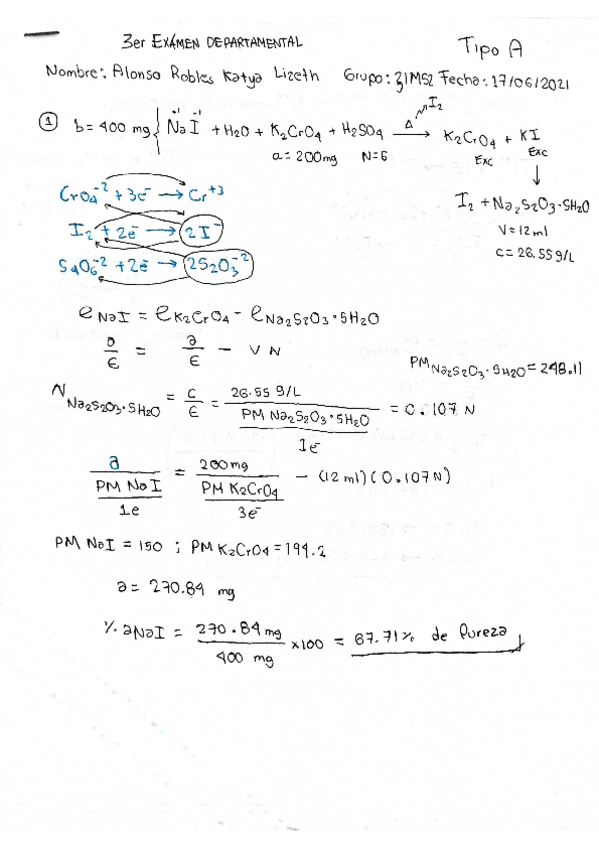 3er EXÁMEN DEPARTAMENTAL
Tipo A
Nombre: Alonso Robles Katya Lizeth Grupo: 3IM52 Fecha: 17/06/2021
① b = 400 mg { Na⁺¹ I⁻¹ + H2O + K2CrO4 + H2SO4 —Δ→ K2CrO4 + KI
I2
a = 200mg N=6 Exc Exc
CrO4⁻² + 3e⁻ → Cr⁺³
I2 + Na2S2O3·5H2O
I2 + 2e⁻ → 2I⁻
V = 12 ml
S4O6⁻² + 2e⁻ → 2S2O3⁻²
c = 26.55 g/L
e NaI = e K2CrO4 - e Na2S2O3·5H2O
a/Є = a/Є - VN
PM Na2S2O3·5H2O = 248.11
N Na2S2O3·5H2O = c/Є = 26.55 g/L / PM Na2S2O3·5H2O / 1e⁻ = 0.107 N
a / PM NaI / 1e = 200mg / PM K2CrO4 / 3e⁻ - (12 ml)(0.107N)
PM NaI = 150 ; PM K2CrO4 = 194.2
a = 270.84 mg
% aNaI = 270.84 mg / 400 mg x100 = 67.71% de Pureza